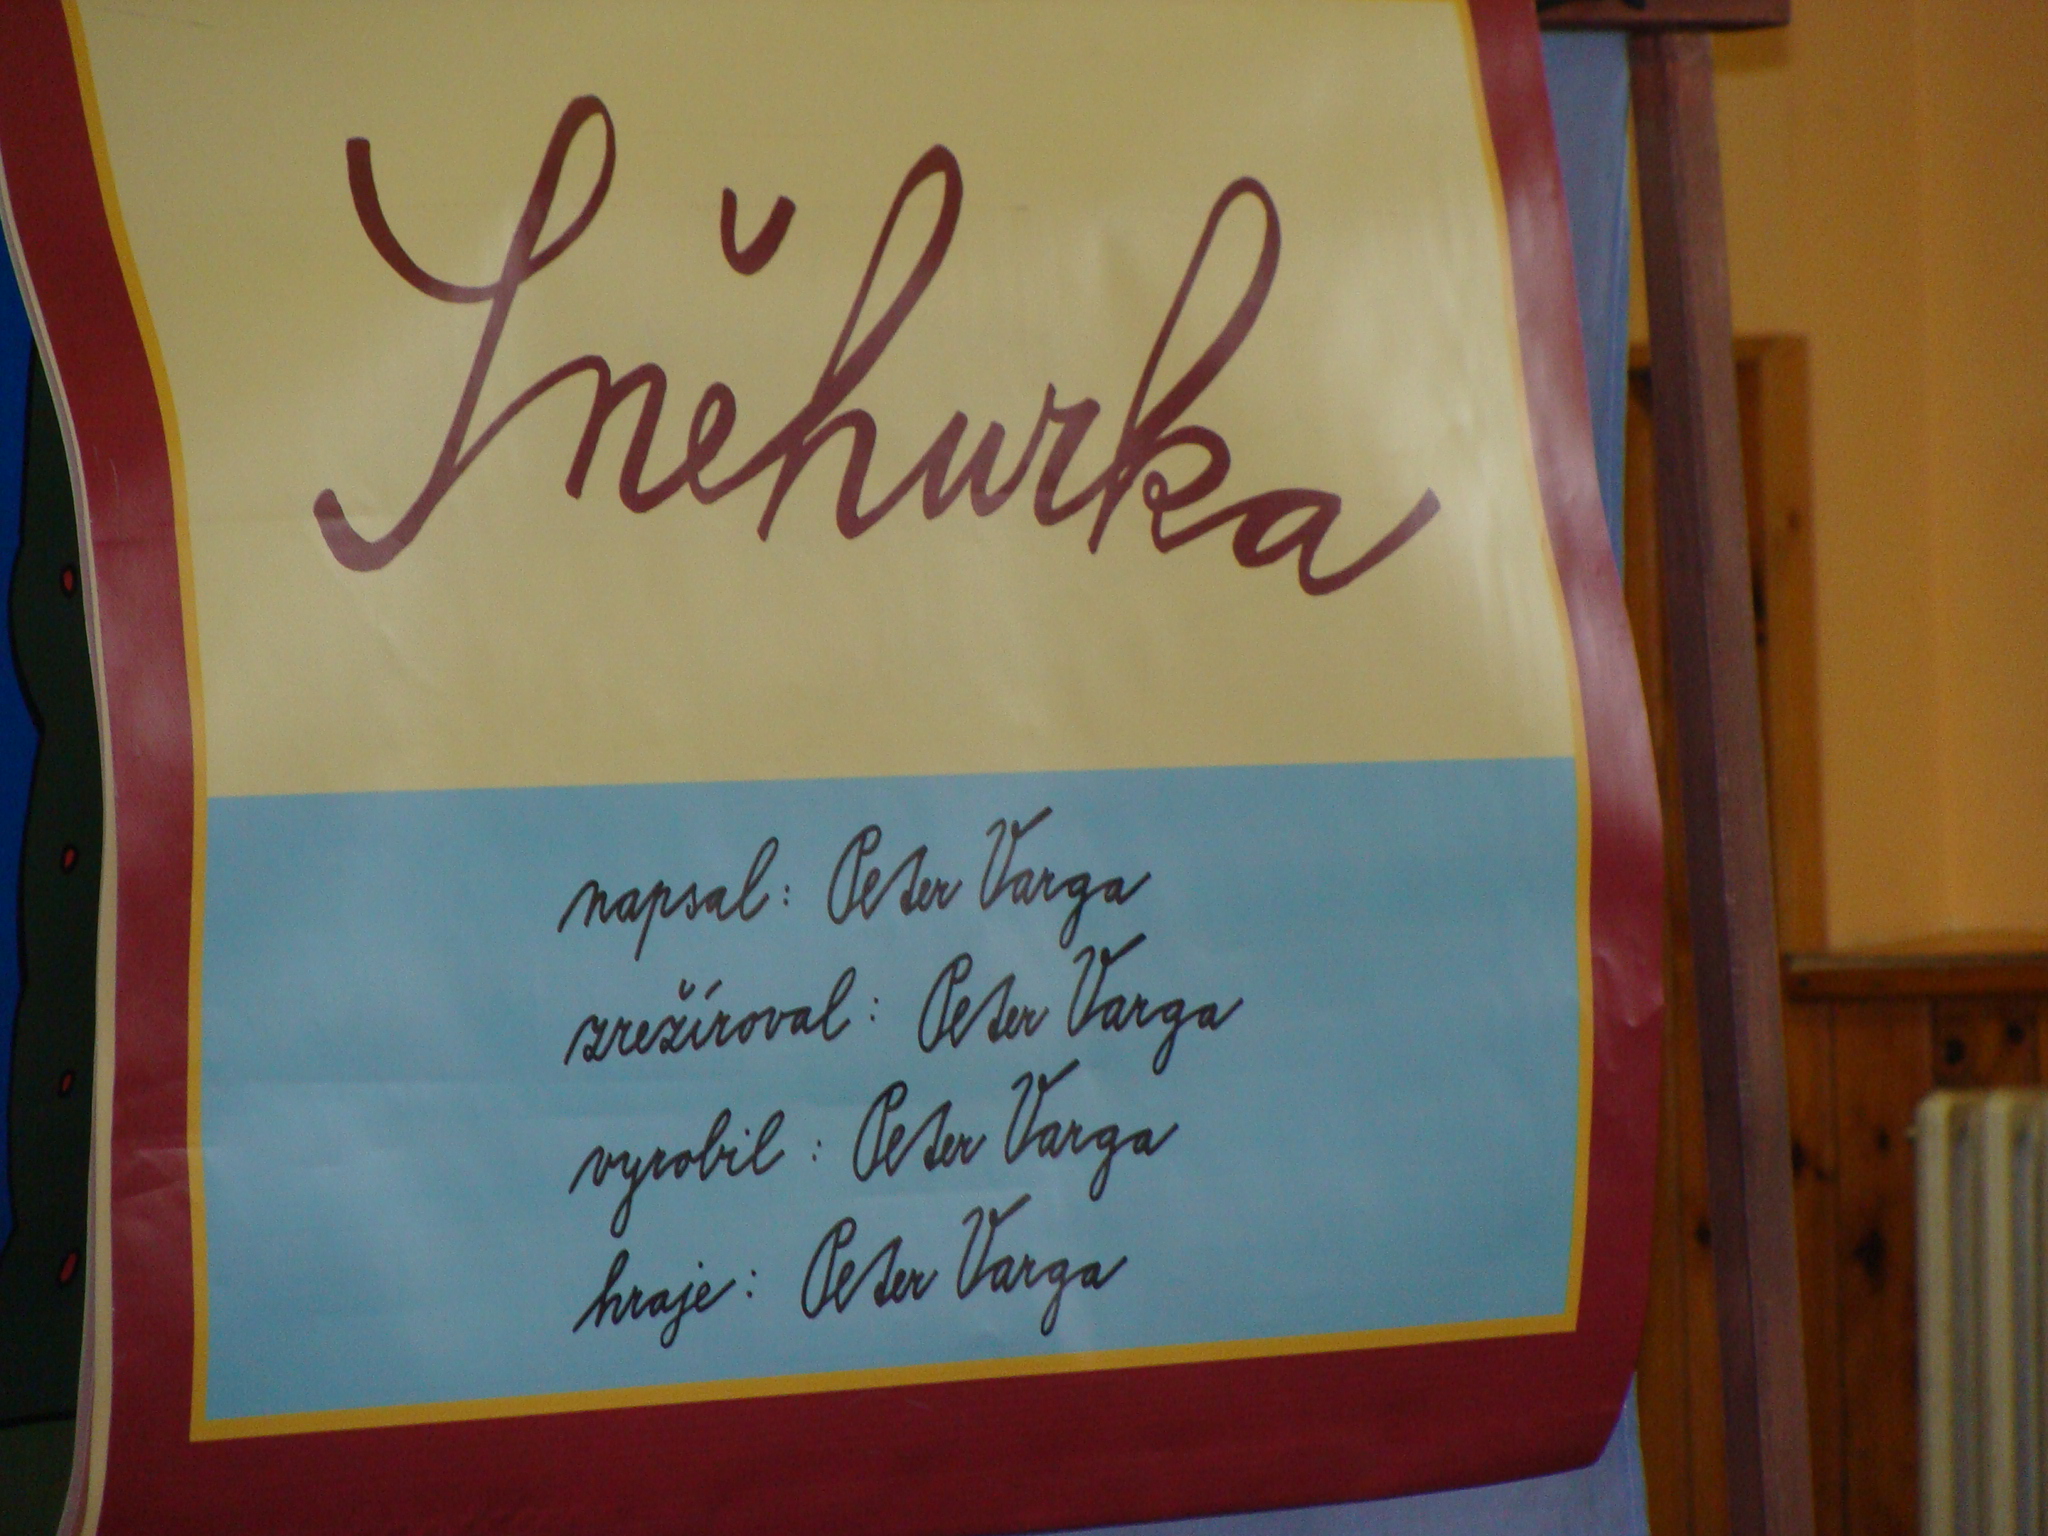 Sněhurka
napsal: Peter Varga
zrežíroval: Peter Varga
vyrobil: Peter Varga
hraje: Peter Varga